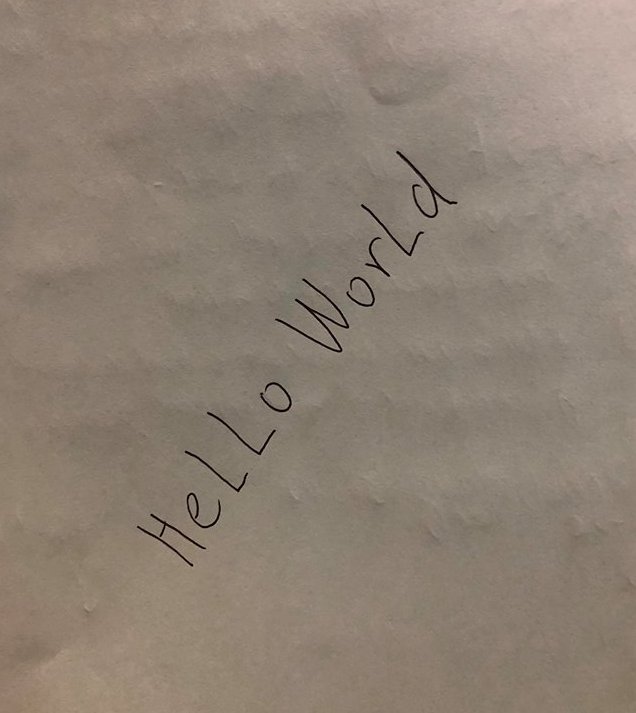 HeLLo WorLd